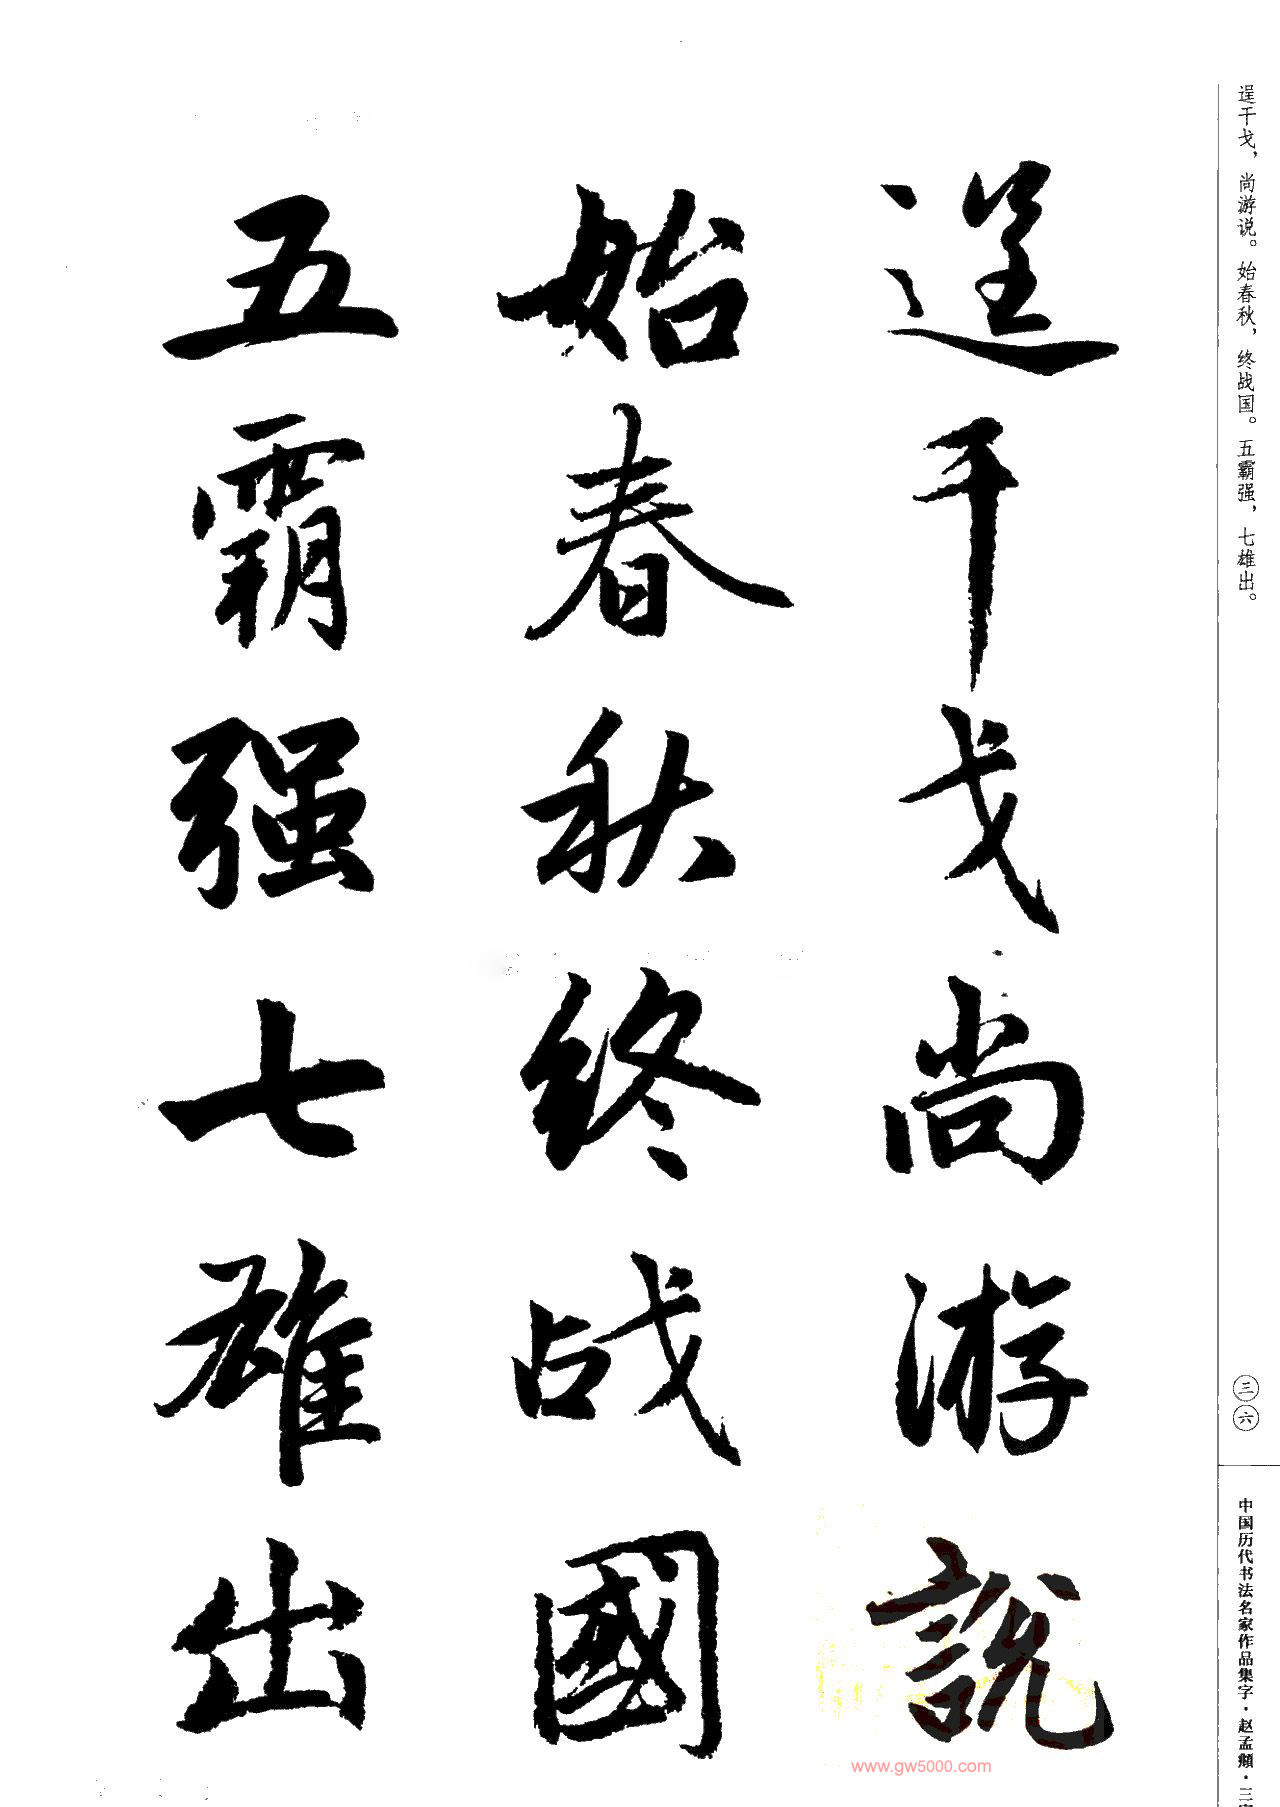 逞干戈，尚游说。始春秋，终战国。五霸强，七雄出。
三六
中国历代书法名家作品集字·赵孟頫·三
逞干戈尚游説
始春秋终战國
五霸强七雄出
www.gw5000.com